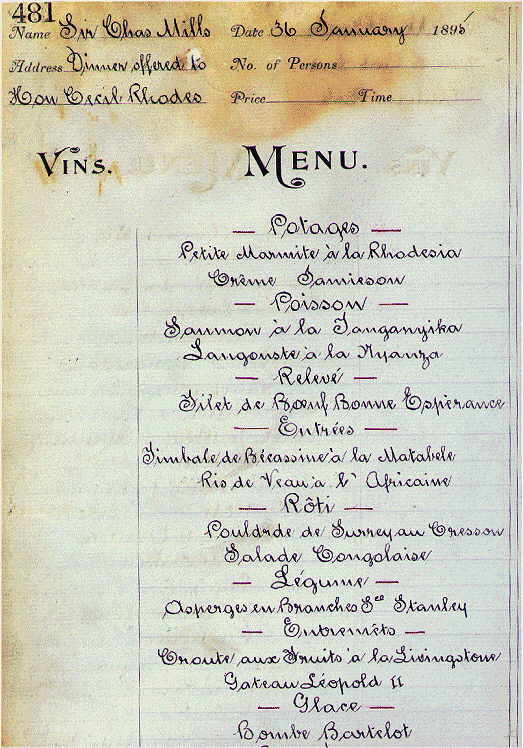 481
Name Sir Chas Mills Date 36 January 1895
Address Dinner offered to No. of Persons
Hon Cecil Rhodes Price Time
VINS. MENU.
— Potages —
Petite Marmite à la Rhodesia
Crême Jamieson
— Poisson —
Saumon à la Tanganyika
Langouste à la Nyanza
— Relevé —
Filet de Bœuf Bonne Espèrance
— Entrées —
Timbale de Bécassine à la Matabele
Ris de Veau à l'Africaine
— Rôti —
Poularde de Surrey au Cresson
Salade Congolaise
— Légume —
Asperges en Branches Sce Stanley
— Entremêts —
Croute aux Fruits à la Livingstone
Gateau Léopold II
— Glace —
Bombe Bartelot